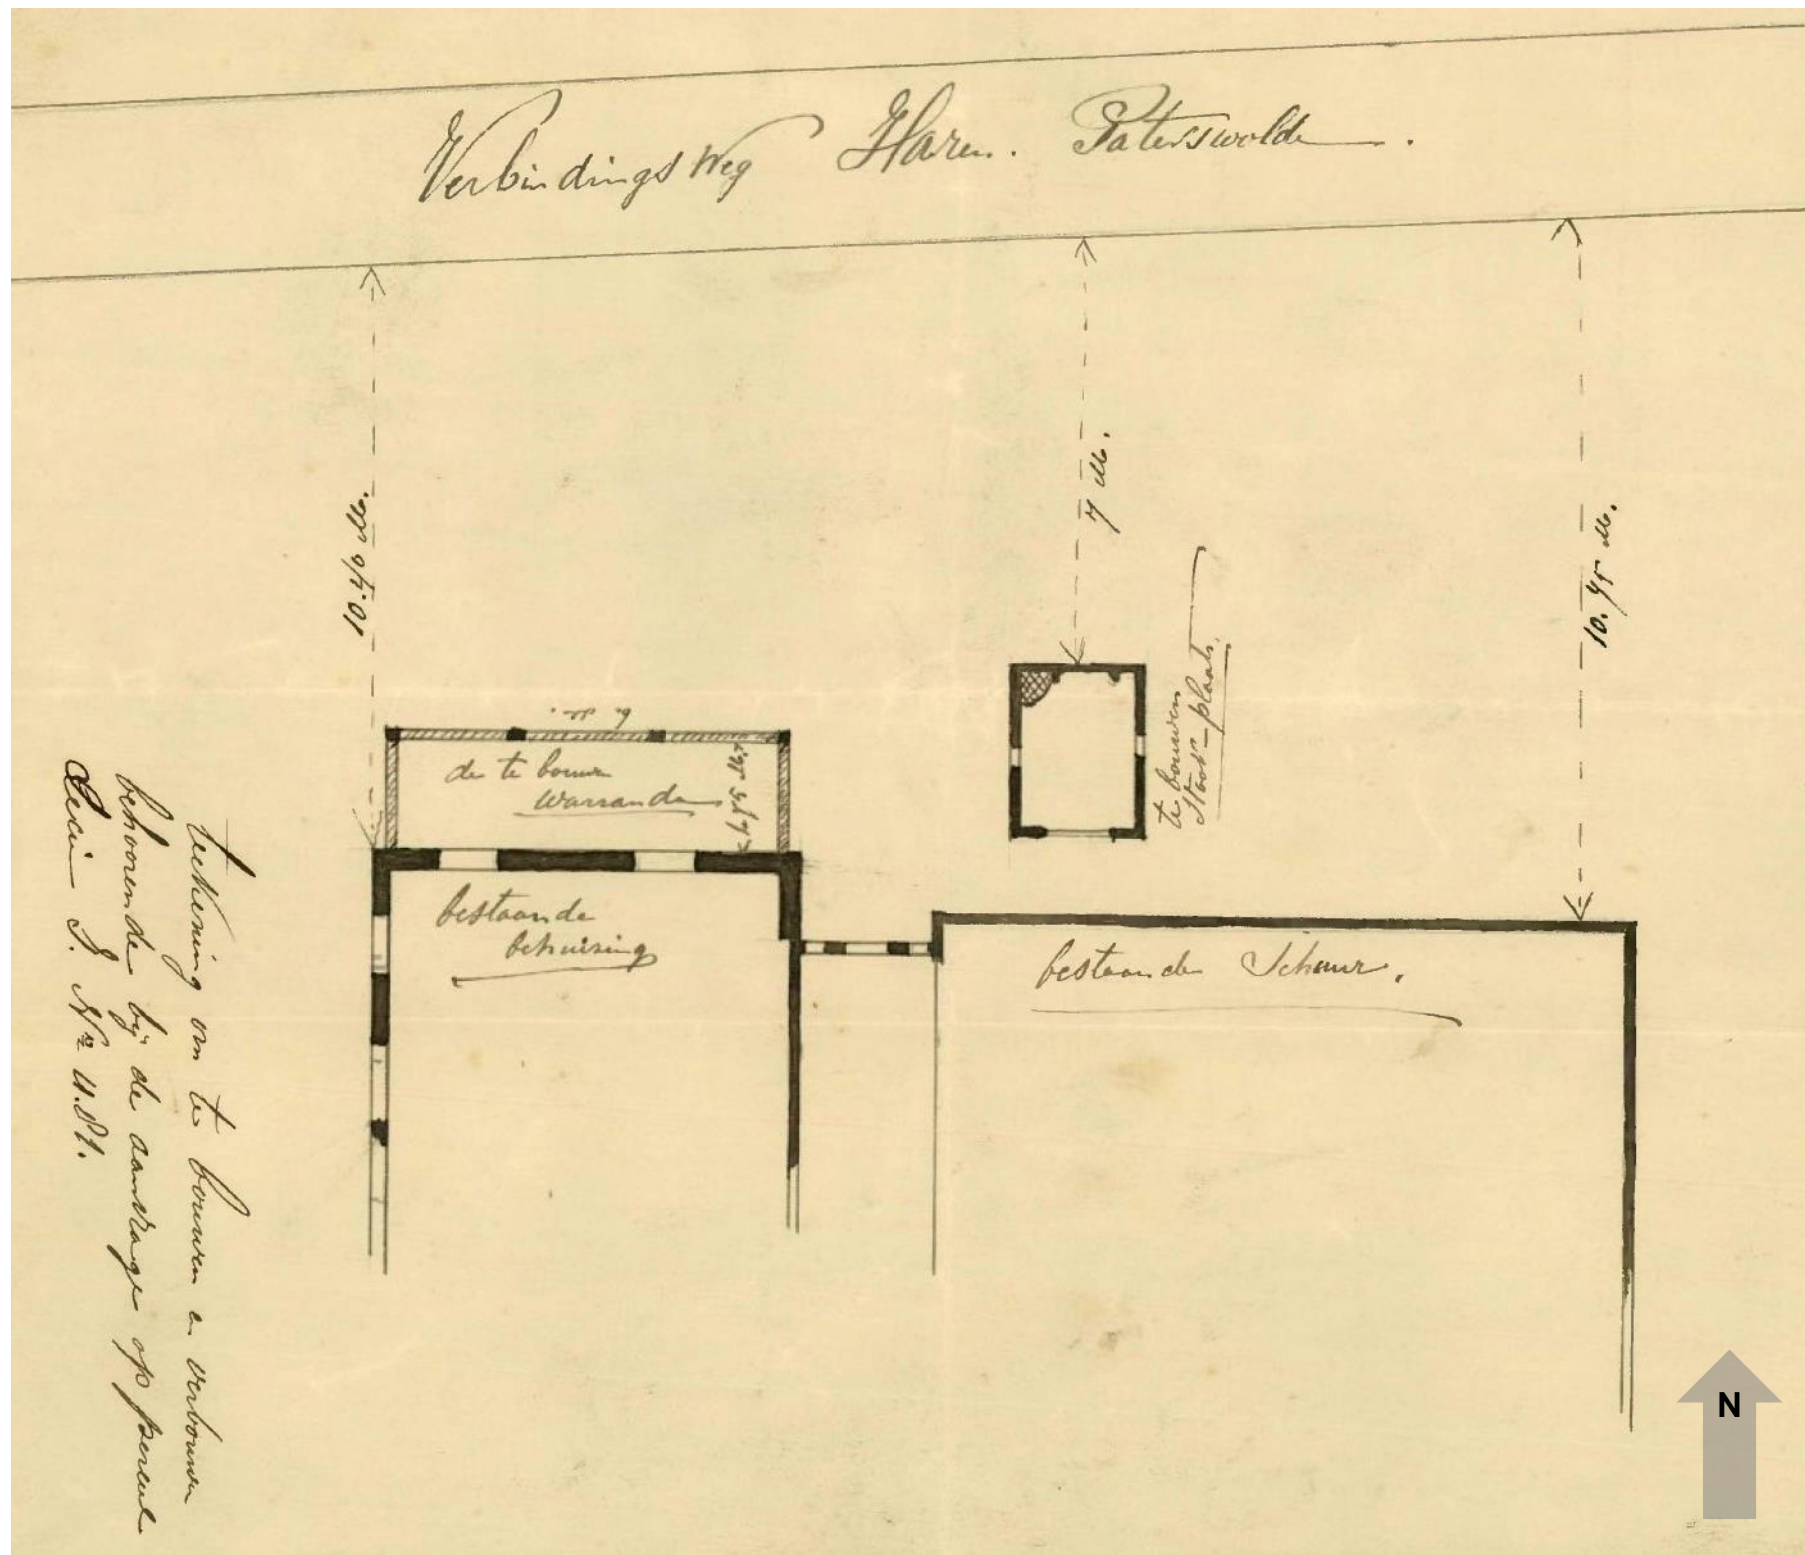 Verbindingsweg Haren. Paterswolde.
10.40 M.
7 M.
10.45 M.
te bouwen
stook-plaats.
6 M.
de te bouwen
warranda
bestaande
behuising
bestaande Schuur.
teekening van te bouwen en verbouwen
behoorende bij de aanvrage op perceel
Sectie I. No
N